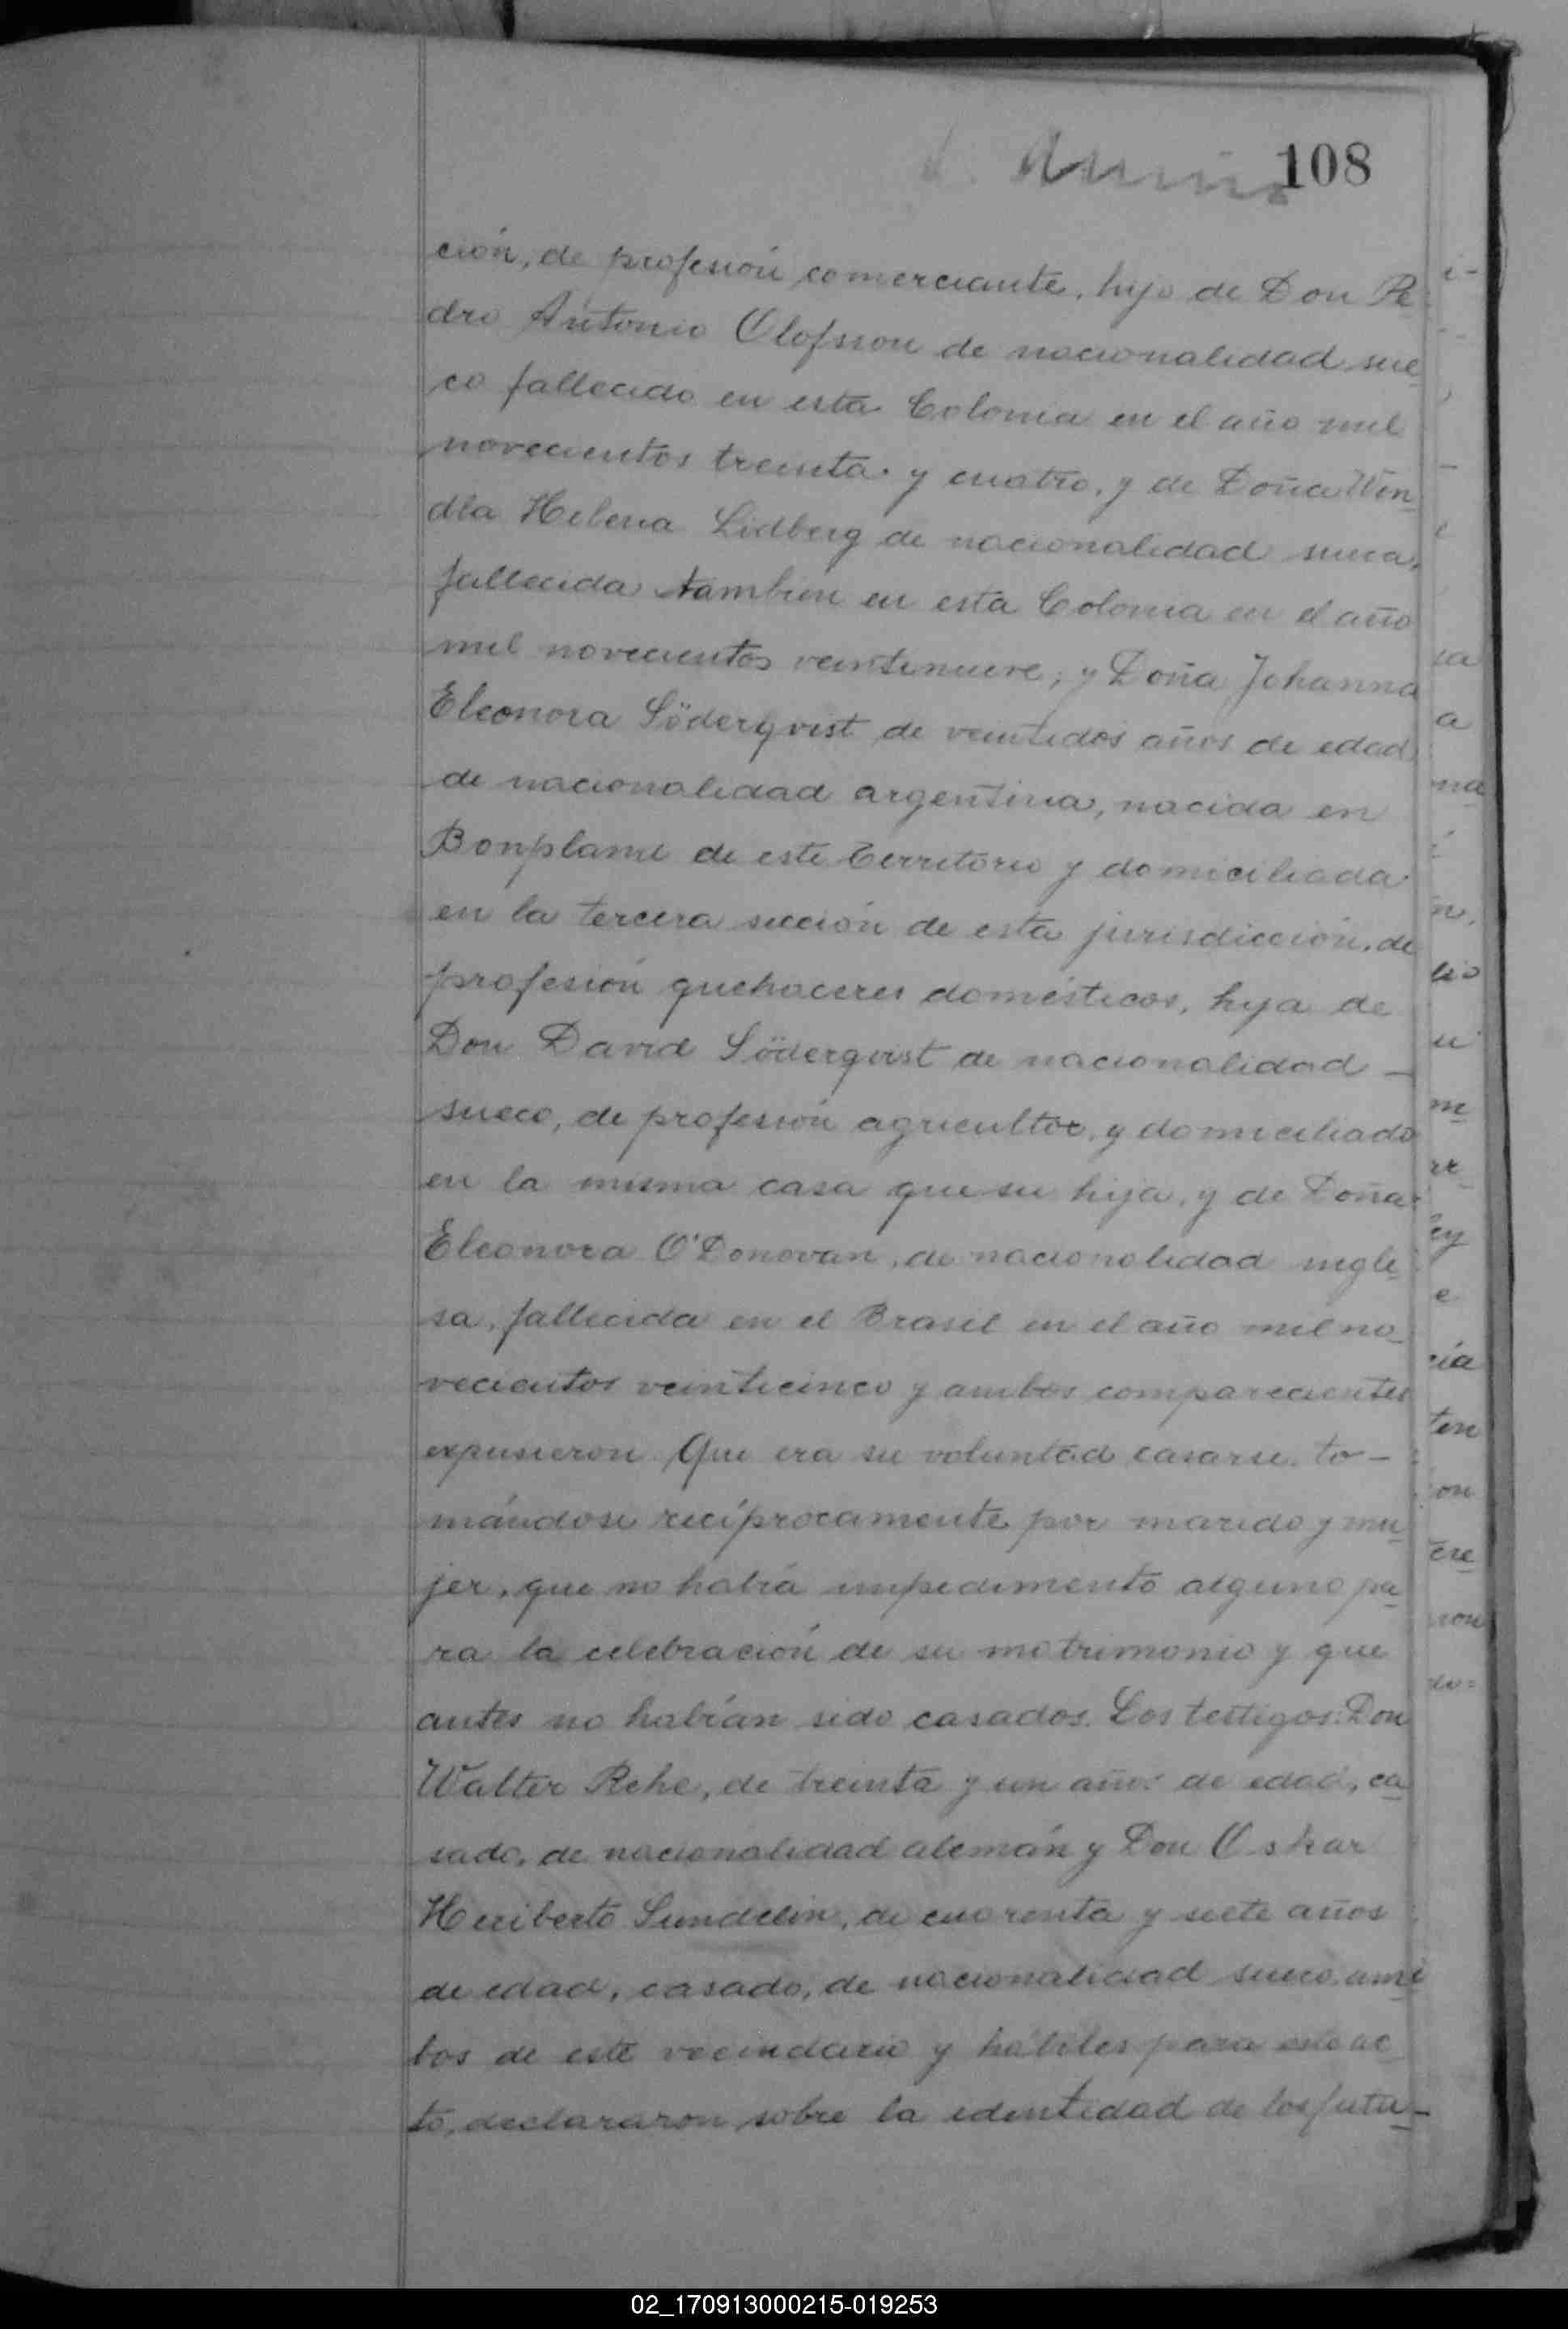 108
ción, de profesión comerciante, hijo de Don Pe
dro Antonio Olofsson de nacionalidad sue
co fallecido en esta Colonia en el año mil
novecientos treinta y cuatro, y de Doña Wen
dla Helena Lidberg de nacionalidad sueca,
fallecida tambien en esta Colonia en el año
mil novecientos veintinueve; y Doña Johanna
Eleonora Söderqvist de veintidos años de edad
de nacionalidad argentina, nacida en
Bonpland de este Territorio y domiciliada
en la tercera sección de esta jurisdicción, de
profesión quehaceres domésticos, hija de
Don David Söderqvist de nacionalidad –
sueco, de profesión agricultor, y domiciliado
en la misma casa que su hija, y de Doña
Eleonora O'Donovan, de nacionalidad ingle
sa, fallecida en el Brasil en el año mil no
vecientos veinticinco y ambos comparecientes
expusieron Que era su voluntad casarse to–
mándose recíprocamente por marido y mu
jer, que no había impedimento alguno pa
ra la celebración de su matrimonio y que
antes no habían sido casados. Los testigos: Don
Walter Rehe, de treinta y un años de edad, ca
sado, de nacionalidad alemán y Don Oskar
Heriberto Sundelin, de cuarenta y siete años
de edad, casado, de nacionalidad sueco am
bos de este vecindario y hábiles para este ac
to, declararon sobre la identidad de los futu–
02_170913000215-019253